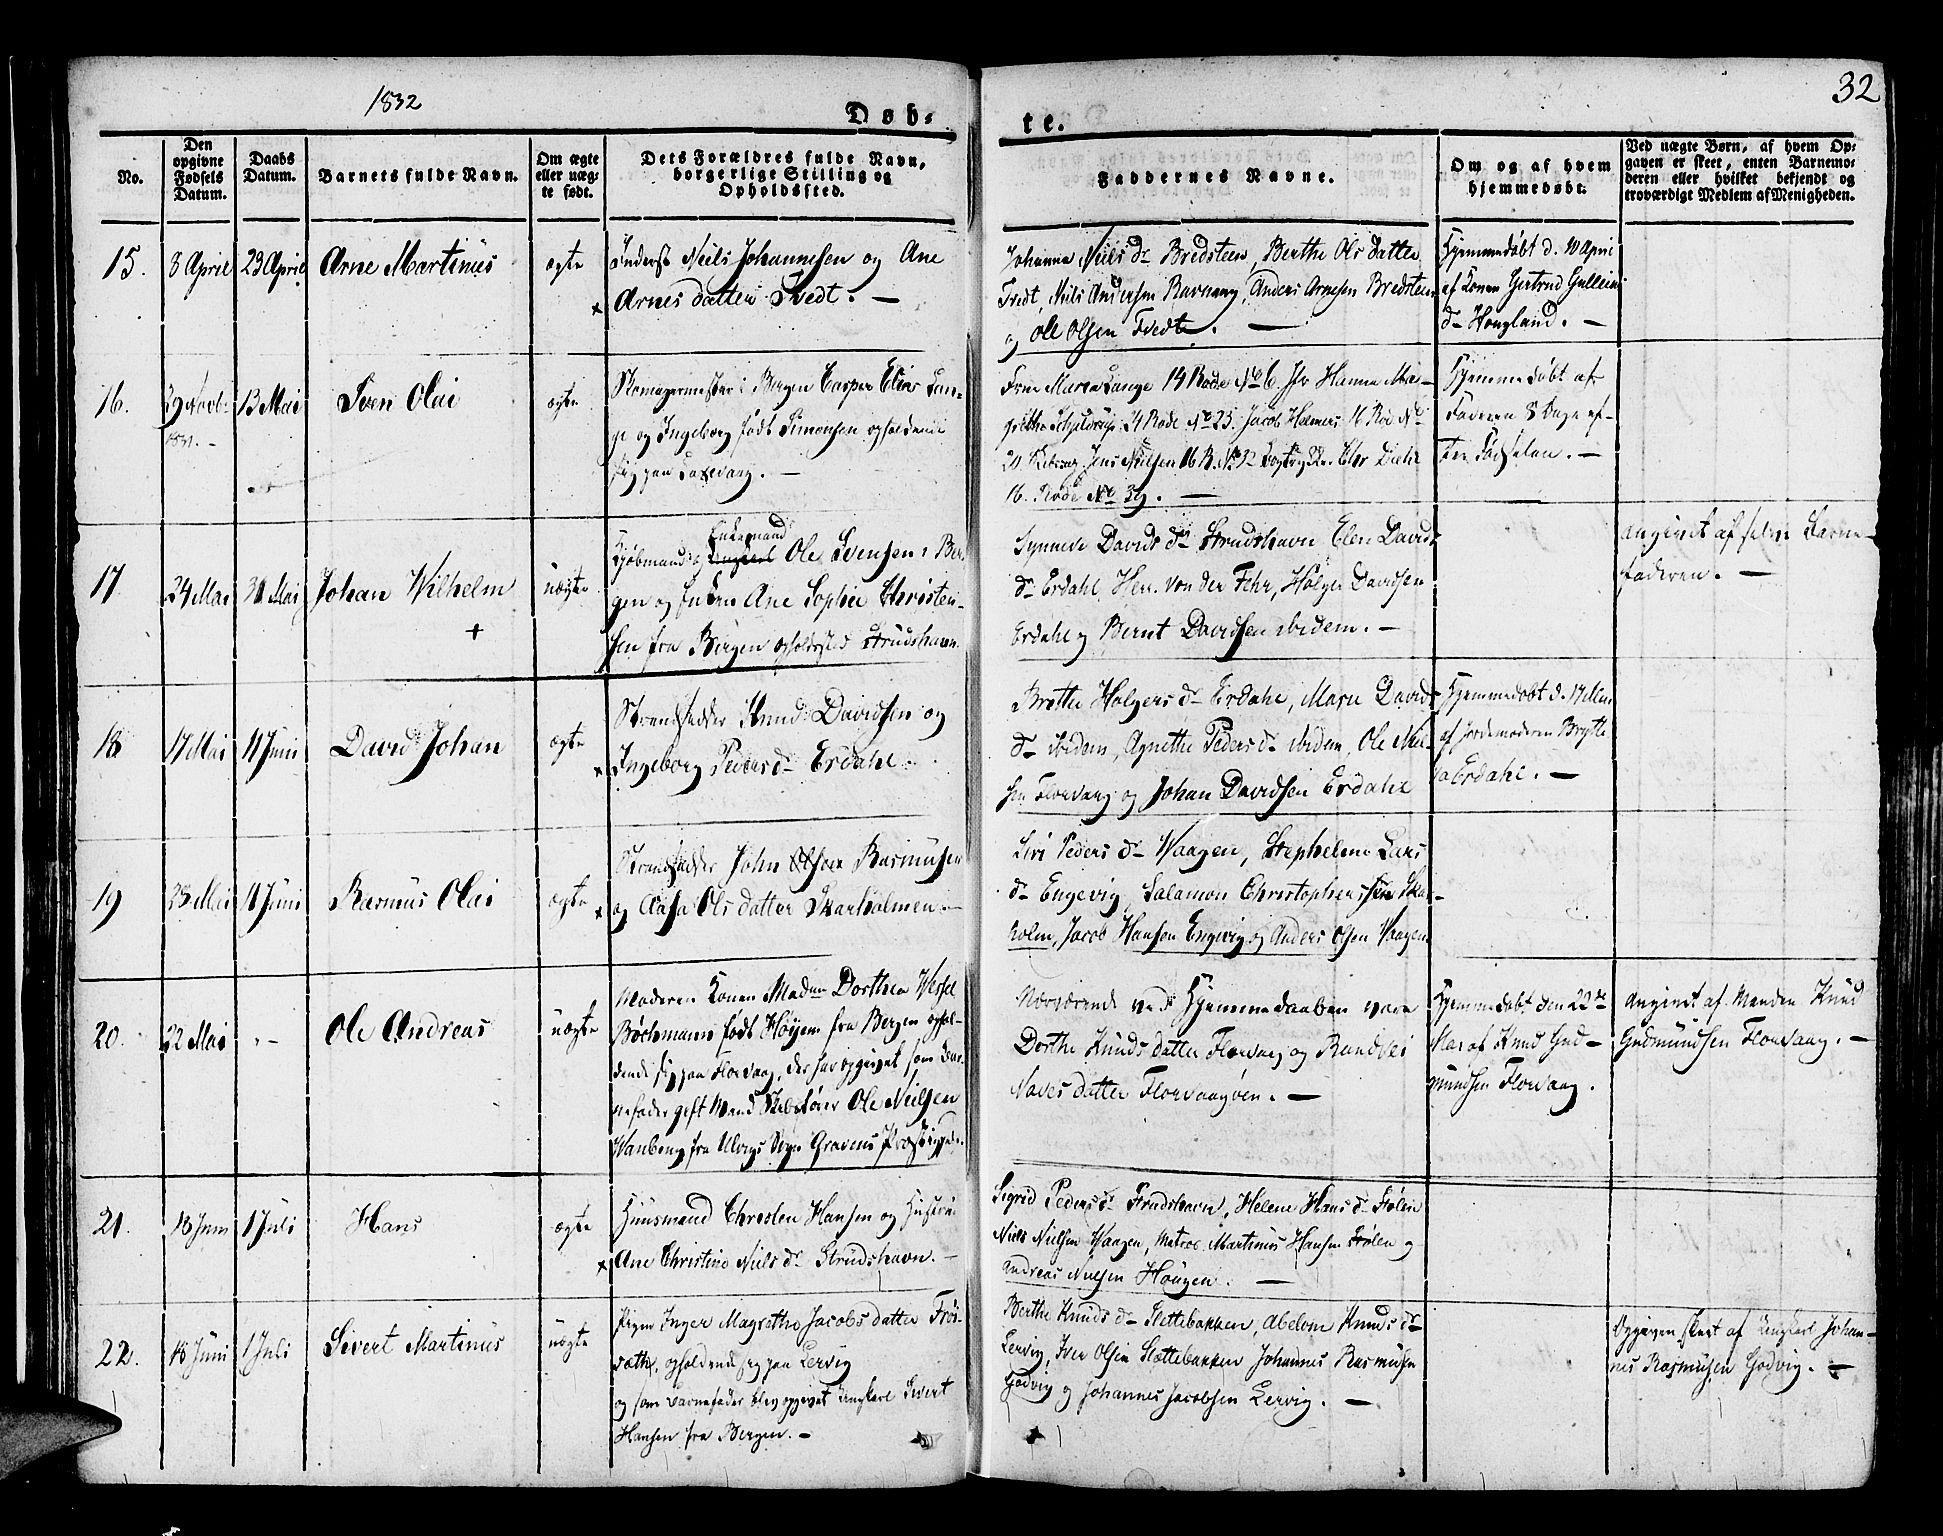 1832
32
Døb-
te.
No.
Den opgivne Fødsels Datum.
Daabs Datum.
Barnets fulde Navn.
Om ægte eller uæg-te født.
Dets Forældres fulde Navn, borgerlige Stilling og Opholdssted.
Faddernes Navne.
Om og af hvem hjemmedøbt.
Ved uægte Børn, af hvem Op-
gaven er skeet, enten Barnemo-
deren eller hvilket bekjendt og
troværdigt Medlem af Menigheden.
15. 8 April 23 April Arne Martinus ægte
Inderst Niels Johannesen og Ane
Arnes datter Tvedt. —
Johanna Niels Dr Bredsteen, Berthe Ols Datter
Tvedt, Niels Andersen Ravnang, Anders Arnesen Bredsteen
og Ole Olsen Tvedte. —
Hjemmedøbt d. 10 April
af Konen Gertrud Gulleiks
Dr Hougland. —
16. 29 Novbr 1831. — 13 Mai Sven Olai ægte
Skomagermester i Bergen Casper Elias Lan-
ge og Ingeborg født Simonsen opholdende
sig paa
Frue Maren Lange 14 Rode No 6. Jfr Hanna Ma-
grethe Schjeldrup 21 Rode No 25. Jacob Helmers 16 Rod No
20 Jens Nielsen 16 R. No 32 Diehl
16. Rode No 39. —
Hjemmedøbt af
Faderen 8 Dage ef-
ter Fødselen. —
17. 24 Mai 30 Mai Johan Wilhelm uægte
+
Enkemand
Kjøbmand og Ungkarl Ole Svensen i Ber-
gen og Enken Ane Sophie Christen-
sen fra Bergen opholdsted Strudshavn.
Synneve Davids Dr Strudshavn Elen Davids
Dr Erdahl, Herr. von der Fehr, Holger Davidsen
Erdahl og Bernt Davidsen ibidem. —
angivet af selve Barne-
faderen. —
18. 17 Mai 11 Juni David Johan ægte
Strandsidder Knud Davidsen og
Ingeborg Peders Dr Erdahl.
Brøtte Holgers Dr Erdahl, Mari Davids
Dr ibidem, Agnethe Peders Dr ibidem, Ole Niel-
sen Florvaag og Johan Davidsen Erdahl
Hjemmedøbt d. 17 Mai
af Jordemoderen Brytte
Erdahl. —
19 23 Mai 11 Juni Rasmus Olai ægte
Strandsidder John Olsen Rasmusen
og Aasa Ols datter Skarholmen. —
Siri Peders Dr Waagen, Stepheline Lars
Dr Engevig, Salamon Christophersen Skar-
holm, Jacob Hansen Engevig og Anders Olsen Waagen
20. 22 Mai - Ole Andreas uægte
Moderen Konen Madme Dorthea Wessel
Bøchmann født Høyem fra Bergen ophol-
dende sig paa Florvaag, der har opgivet som Bar-
nefader gift Mand Ole Nielsen
Wanberg fra Ulvigs Sogn Gravens Præstegjeld.
Nærværende ved Hjemmedaaben vare
Dorthe Knuds datter Florvaag og Randvei
Naves datter Florvaagøen. —
Hjemmedøbt den 22de
Mai af Knud Gud-
mundsen Florvaag.
Angivet af Manden Knud
Gudmundsen Florvaag. —
21. 18 Juni 1 Juli Hans ægte
Huusmand Christen Hansen og Hustru
Ane Christine Niels Dr Strudshavn. —
Sigrid Peders Dr Strudshavn, Helene Hans Dr Stølen
Niels Nielsen Waagen, Matros Martinus Hansen Stølen og
Andreas Nielsen Hougen. —
22. 18 Juni 1 Juli Sivert Martinus uægte
Pigen Inger Magrethe Jacobs datter Frøs-
, opholdende sig paa Lervig
og som Barnefader blev opgivet Ungkarl Sivert
Hansen fra Bergen. —
Berthe Knuds Dr Slettebakken, Abelone Knuds Dr
Lervig, Iver Olsen Slettebakken, Johannes Rasmusen
Godvig og Johannes Jacobsen Lervig. —
Opgaven skeet af Ungkarl Johan-
nes Rasmusen Godvig. —